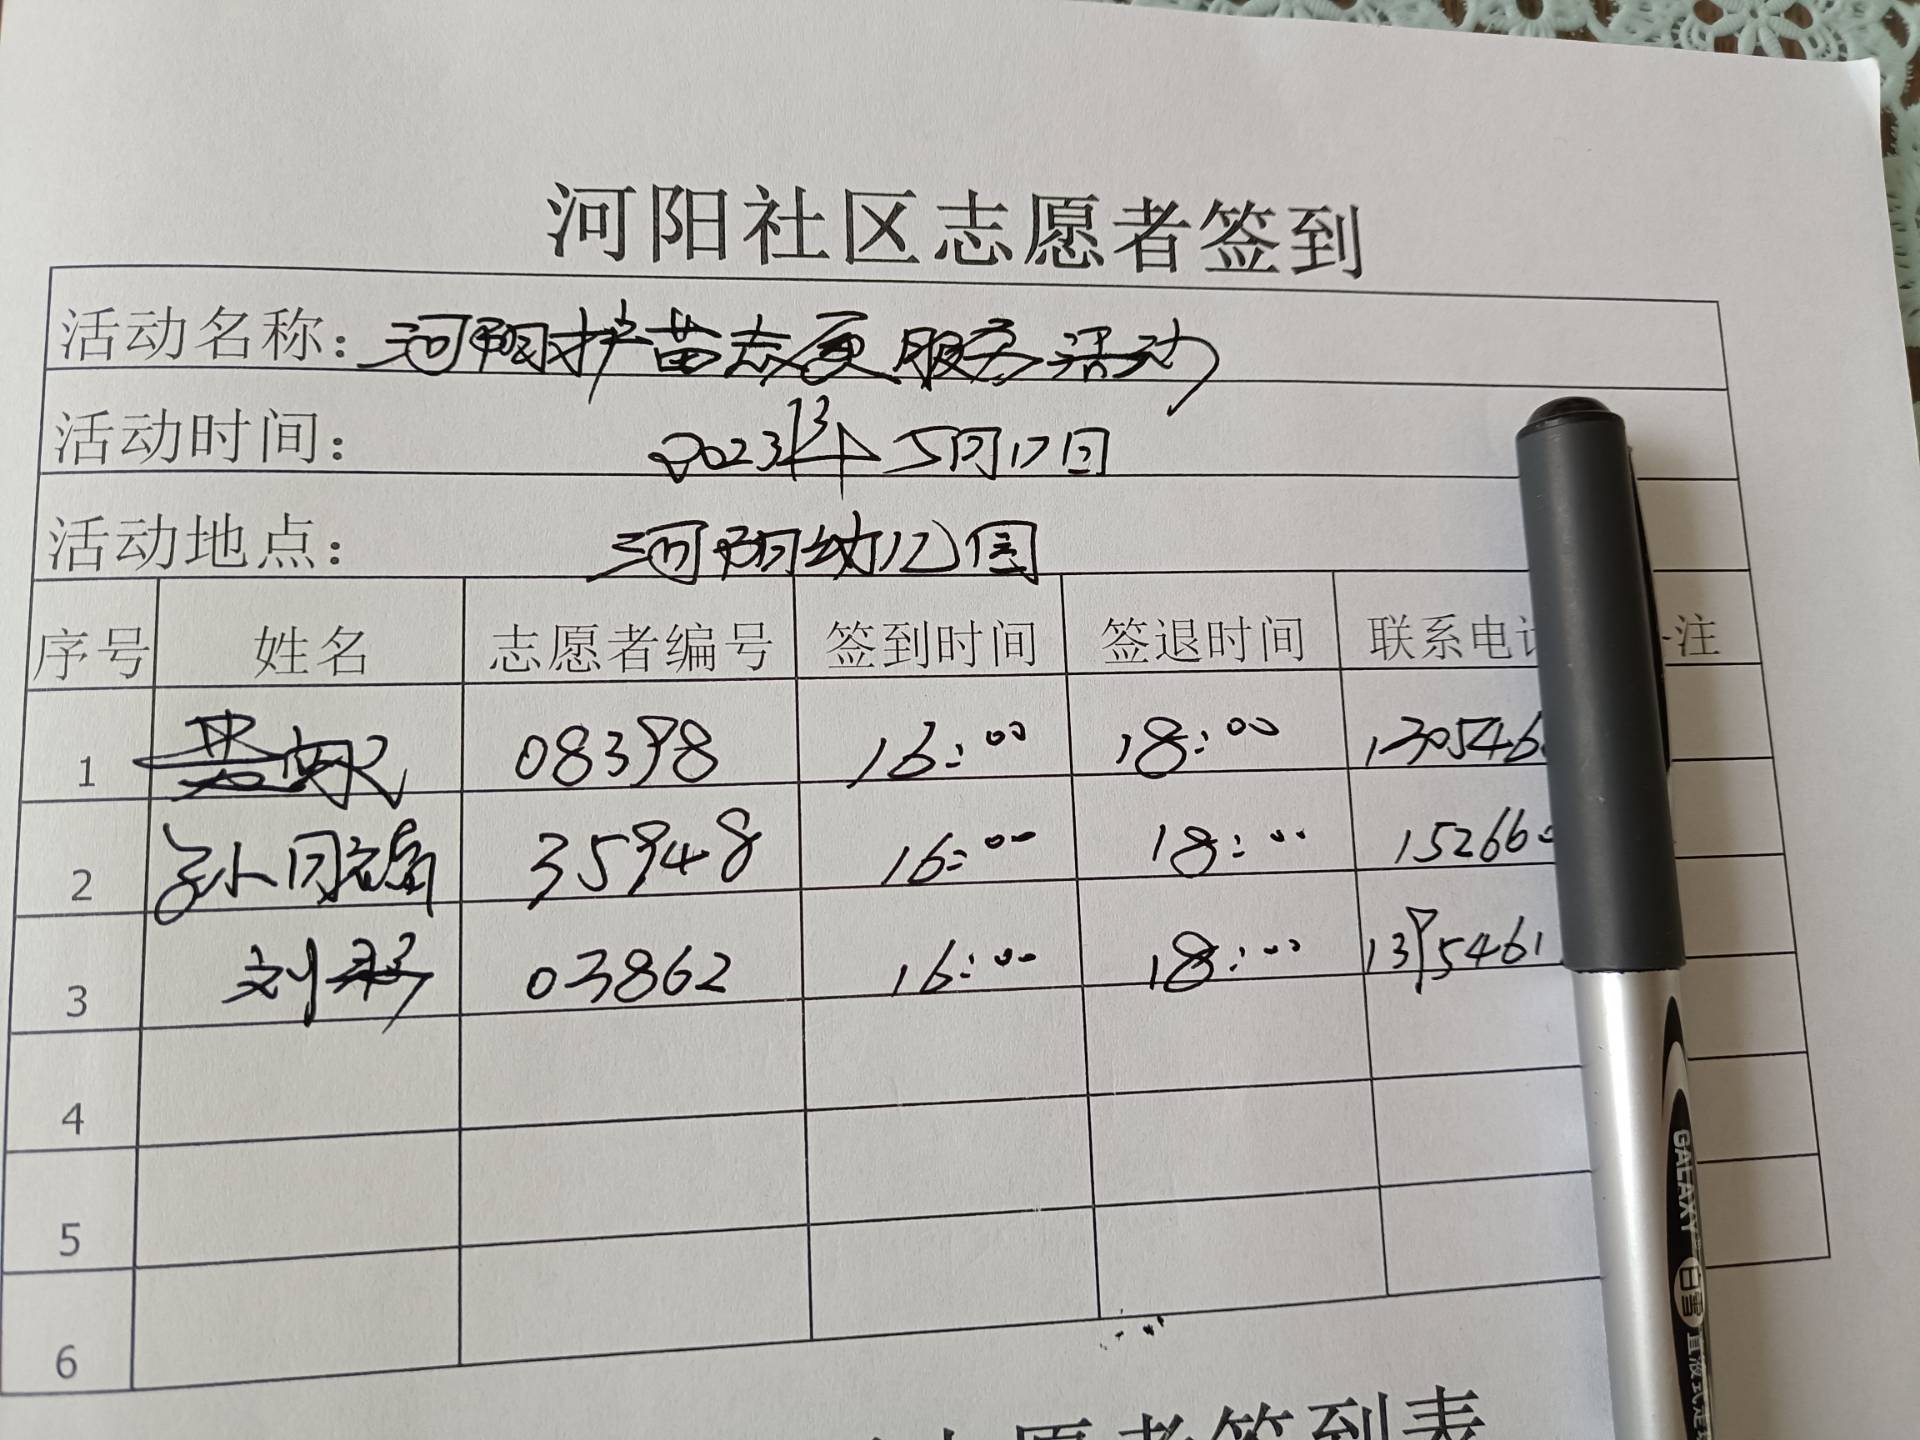 河阳社区志愿者签到
活动名称：河阳护苗志愿服务活动
活动时间：2023年5月17日
活动地点：河阳幼儿园
序号 姓名 志愿者编号 签到时间 签退时间 联系电 注
1 08398 16:00 18:00 130546
2 孙同瑞 35948 16:00 18:00 15266
3 刘 03862 16:00 18:00 1395461
4
5
6
志愿者签到表
GALAXY 白雪 直液式走珠